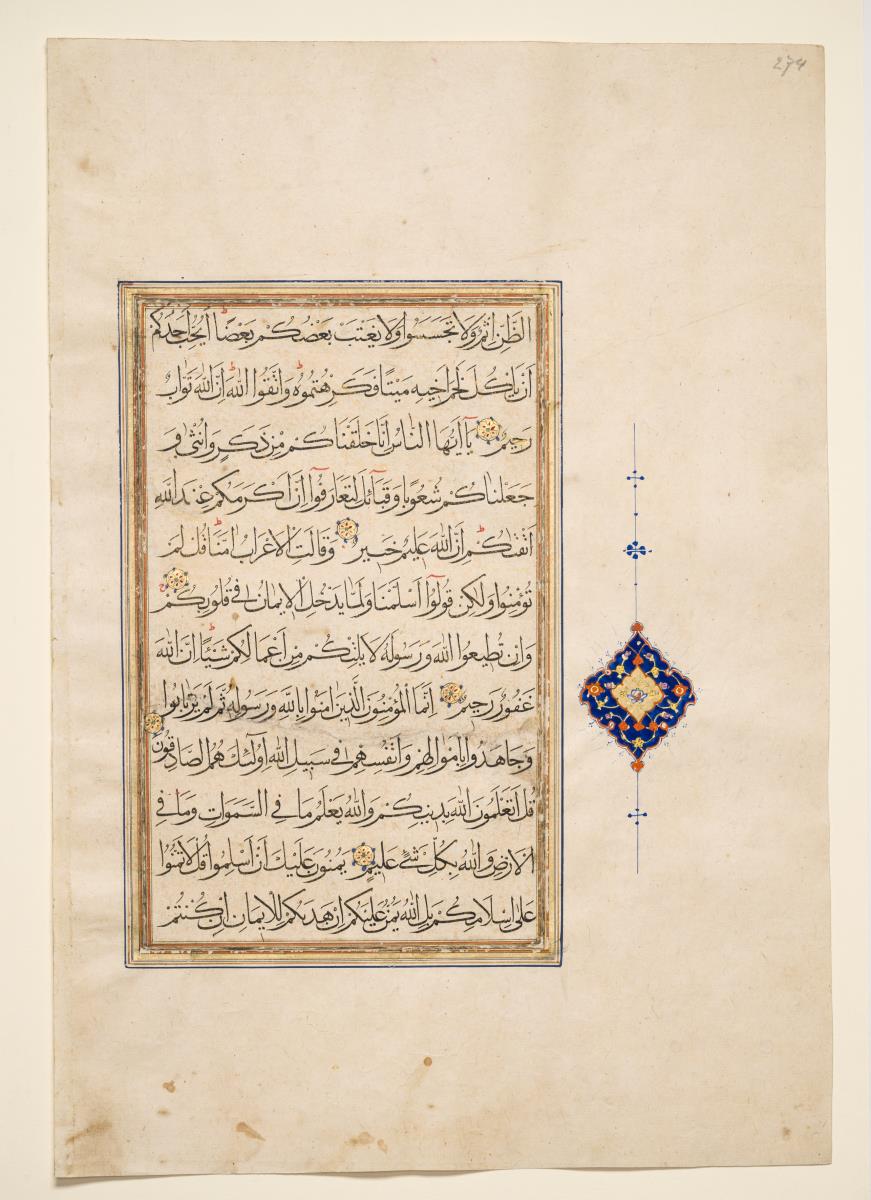 274
الظَّنِّ اِثْمٌ وَلَا تَجَسَّسُوا وَلَا يَغْتَبْ بَعْضُكُمْ بَعْضًا اَيُحِبُّ اَحَدُكُمْ
اَنْ يَاْكُلَ لَحْمَ اَخِيهِ مَيْتًا فَكَرِهْتُمُوهُ وَاتَّقُوا اللّٰهَ اِنَّ اللّٰهَ تَوَّابٌ
رَحِيمٌ يَآ اَيُّهَا النَّاسُ اِنَّا خَلَقْنَاكُمْ مِنْ ذَكَرٍ وَاُنْثٰى وَ
جَعَلْنَاكُمْ شُعُوبًا وَقَبَآئِلَ لِتَعَارَفُوٓا اِنَّ اَكْرَمَكُمْ عِنْدَ اللّٰهِ
اَتْقٰىكُمْ اِنَّ اللّٰهَ عَلِيمٌ خَبِيرٌ وَقَالَتِ الْاَعْرَابُ اٰمَنَّا قُلْ لَمْ
تُؤْمِنُوا وَلٰكِنْ قُولُوٓا اَسْلَمْنَا وَلَمَّا يَدْخُلِ الْاِيمَانُ فِي قُلُوبِكُمْ
وَاِنْ تُطِيعُوا اللّٰهَ وَرَسُولَهُ لَا يَلِتْكُمْ مِنْ اَعْمَالِكُمْ شَيْئًا اِنَّ اللّٰهَ
غَفُورٌ رَحِيمٌ اِنَّمَا الْمُؤْمِنُونَ الَّذِينَ اٰمَنُوا بِاللّٰهِ وَرَسُولِهِ ثُمَّ لَمْ يَرْتَابُوا
وَجَاهَدُوا بِاَمْوَالِهِمْ وَاَنْفُسِهِمْ فِي سَبِيلِ اللّٰهِ اُولٰٓئِكَ هُمُ الصَّادِقُونَ
قُلْ اَتُعَلِّمُونَ اللّٰهَ بِدِينِكُمْ وَاللّٰهُ يَعْلَمُ مَا فِي السَّمٰوَاتِ وَمَا فِي
الْاَرْضِ وَاللّٰهُ بِكُلِّ شَيْءٍ عَلِيمٌ يَمُنُّونَ عَلَيْكَ اَنْ اَسْلَمُوا قُلْ لَا تَمُنُّوا
عَلَيَّ اِسْلَامَكُمْ بَلِ اللّٰهُ يَمُنُّ عَلَيْكُمْ اَنْ هَدٰىكُمْ لِلْاِيمَانِ اِنْ كُنْتُمْ